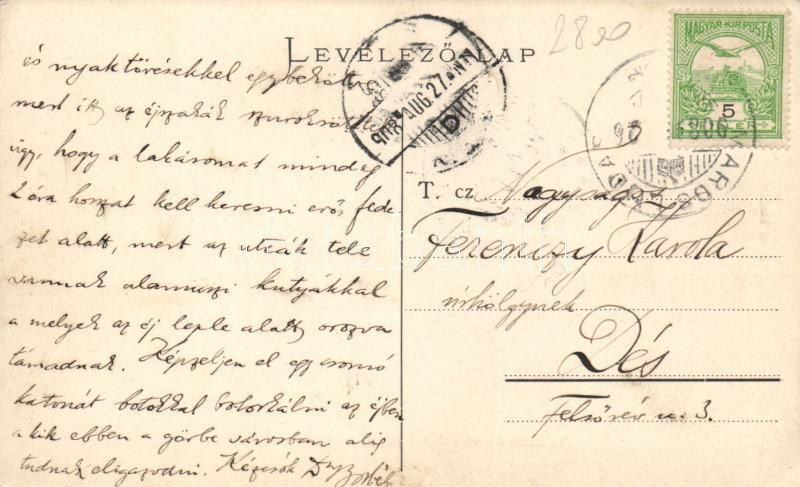 LEVELEZŐ-LAP
2800
MAGYAR KIR. POSTA
5
és nyaktörésekkel egybekötött
mert itt az éjszakák szuroksötétek
úgy, hogy a lakásomat mindég
2 óra hosszat kell keresni erős fede-
zet alatt, mert az utcák tele
vannak alamuszi kutyákkal
a melyek az éj leple alatt orozva
támadnak. Képzeljen el egy csomó
katonát botokkal botorkálni az éjben
a kik ebben a görbe városban alig
tudnak eligazodni. Kézcsók
T. cz. Nagyság
Ferenczy Karola
úrhölgynek
Dés
Felsőrév u. 3.
908 AUG. 27
MAROS